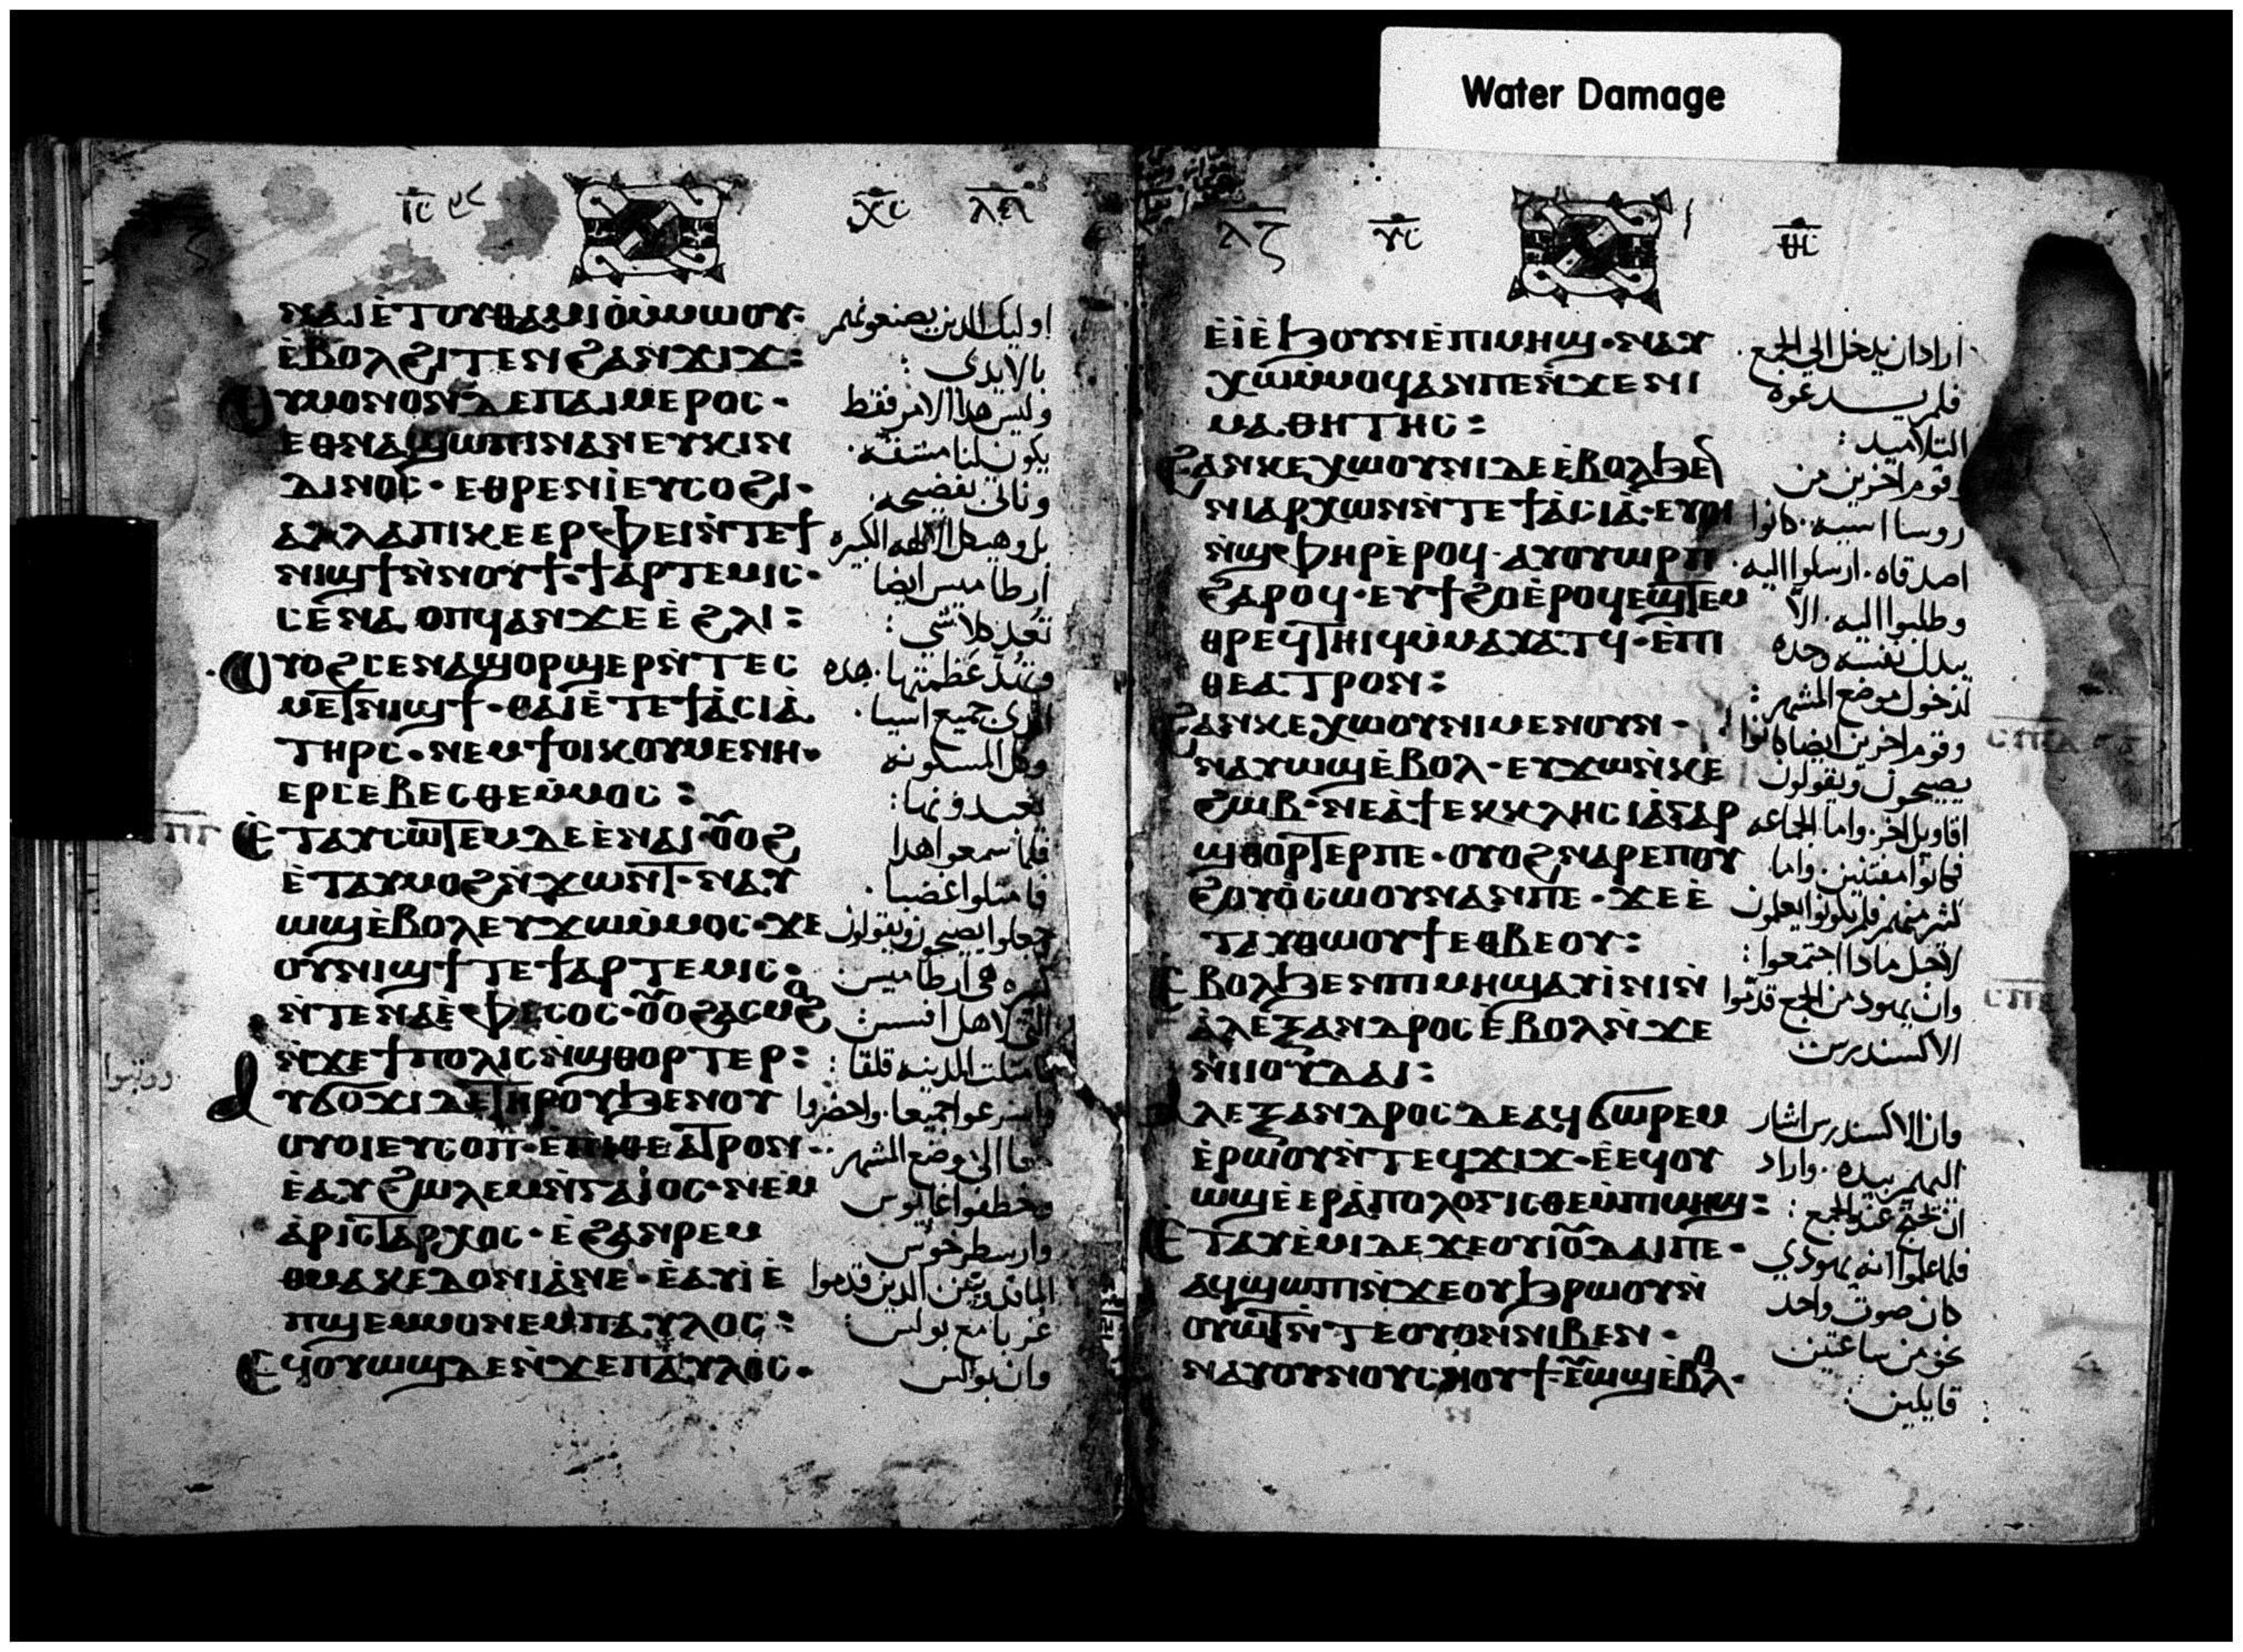 Water Damage
ⲓ̅ⲥ̅ ⲭ̅ⲥ̅
ⲛⲁⲓⲉ̀ⲧⲟⲩⲑⲁⲙⲓⲟ̀ⲙ̀ⲙⲱⲟⲩ·
ⲉ̀ⲃⲟⲗϩⲓⲧⲉⲛϩⲁⲛϫⲓϫ:
ⲟⲩⲙⲟⲛⲟⲛⲇⲉⲡⲁⲓⲙⲉⲣⲟⲥ·
ⲉⲑⲛⲁϣⲱⲡⲓⲛⲁⲛⲉⲩⲕⲓⲛ
ⲇⲓⲛⲟⲥ·ⲉⲑⲣⲉⲛⲓ̀ⲉⲩⲥⲟϩⲓ·
ⲁⲗⲗⲁⲡⲓⲕⲉⲉⲣⲫⲉⲓⲛ̀ⲧⲉϯ
ⲛⲓϣϯⲛ̀ⲛⲟⲩϯ·ϯⲁⲣⲧⲉⲙⲓⲥ·
ⲥⲉⲛⲁⲟⲡϥⲁⲛϫⲉⲉ̀ϩⲗⲓ:
ⲟⲩⲟϩⲥⲉⲛⲁϣⲟⲣϣⲉⲣⲛ̀ⲧⲉⲥ
ⲙⲉⲧⲛⲓϣϯ·ⲑⲁⲓⲉ̀ⲧⲉϯⲁ̀ⲥⲓⲁ̀
ⲧⲏⲣⲥ·ⲛⲉⲙϯⲟⲓⲕⲟⲩⲙⲉⲛⲏ·
ⲉⲣⲥⲉⲃⲉⲥⲑⲉⲙ̀ⲙⲟⲥ:
ⲉ̀ⲧⲁⲩⲥⲱⲧⲉⲙⲇⲉⲉ̀ⲛⲁⲓ·ⲟ̅ⲟϩ
ⲉ̀ⲧⲁⲩⲙⲟϩⲛ̀ϫⲱⲛⲧ·ⲛⲁⲩ
ⲱϣⲉ̀ⲃⲟⲗⲉⲩϫⲱⲙ̀ⲙⲟⲥ·ϫⲉ
ⲟⲩⲛⲓϣϯⲧⲉϯⲁⲣⲧⲉⲙⲓⲥ·
ⲛ̀ⲧⲉⲛⲁⲉ̀ⲫⲉⲥⲟⲥ·ⲟ̅ⲟϩⲁⲥⲙⲟϩ
ⲛ̀ϫⲉϯⲡⲟⲗⲓⲥⲛ̀ϣⲑⲟⲣⲧⲉⲣ:
ⲁⲩϭⲟϫⲓⲇⲉⲧⲏⲣⲟⲩϧⲉⲛⲟⲩ
ⲟⲩⲟⲓⲉⲩⲥⲟⲡ·ⲉ̀ⲡⲓⲑⲉⲁⲧⲣⲟⲛ·
ⲉ̀ⲁⲩϩⲱⲗⲉⲙⲛ̀ⲅⲁⲓ̀ⲟⲥ·ⲛⲉⲙ
ⲁ̀ⲣⲓⲥⲧⲁⲣⲭⲟⲥ·ⲉ̀ϩⲁⲛⲣⲉⲙ
ⲑⲙⲁⲕⲉⲇⲟⲛⲓⲁ̀ⲛⲉ·ⲉ̀ⲁⲩⲓ̀ⲉ̀
ⲡϣⲉⲙⲙⲟⲛⲉⲙⲡⲁⲩⲗⲟⲥ:
ⲉϥⲟⲩⲱϣⲇⲉⲛ̀ϫⲉⲡⲁⲩⲗⲟⲥ·
اوليك الذين يصنعونهم
بالايدي :
وليس هذا الامر فقط
يكون لنا مشقه ·
وناتي لفضيحه ·
بل وهيكل الالهه الكبيره
ارطاميس ايضا
تعد كلا شي :
جميع اسيا ·
وكل المسكونه
فلما سمعوا هذا
فامتلوا غضبا ·
جعلوا يصيحون ويقولون
كبيره هي ارطاميس
فامتلت المدينه قلقا :
واسرعوا جميعا · واحضروا
وخطفوا غايوس
وارسطرخوس
غربا مع بولس :
وان بولس
ⲗ̅ⲍ̅ ⲩ̅ⲥ̅ ⲑ̅ⲥ̅
ⲉ̀ⲓ̀ⲉ̀ϧⲟⲩⲛⲉ̀ⲡⲓⲙⲏϣ·ⲛⲁⲩ
ⲭⲱⲙ̀ⲙⲟϥⲁⲛⲡⲉⲛ̀ϫⲉⲛⲓ
ⲙⲁⲑⲏⲧⲏⲥ:
ϩⲁⲛⲕⲉⲭⲱⲟⲩⲛⲓⲇⲉⲉ̀ⲃⲟⲗϧⲉⲛ
ⲛⲓⲁⲣⲭⲱⲛⲛ̀ⲧⲉϯⲁ̀ⲥⲓⲁ̀·ⲉⲩⲟⲓ
ⲛ̀ϣⲫⲏⲣⲉ̀ⲣⲟϥ·ⲁⲩⲟⲩⲱⲣⲡ
ϩⲁⲣⲟϥ·ⲉⲩϯϩⲟⲉ̀ⲣⲟϥⲉϣⲧⲉⲙ
ⲑⲣⲉϥⲧⲏⲓϥⲙ̀ⲙⲁⲩⲁⲧϥ·ⲉ̀ⲡⲓ
ⲑⲉⲁⲧⲣⲟⲛ:
ϩⲁⲛⲕⲉⲭⲱⲟⲩⲛⲓⲙⲉⲛⲟⲩⲛ·
ⲛⲁⲩⲱϣⲉ̀ⲃⲟⲗ·ⲉⲩϫⲱⲛ̀ⲕⲉ
ϩⲱⲃ·ⲛⲉⲁ̀ϯⲉⲕⲕⲗⲏⲥⲓⲁ̀ⲅⲁⲣ
ϣⲑⲟⲣⲧⲉⲣⲡⲉ·ⲟⲩⲟϩⲛⲁⲣⲉⲡⲟⲩ
ϩⲟⲩⲟ̀ⲥⲱⲟⲩⲛⲁⲛⲡⲉ·ϫⲉⲉ̀
ⲧⲁⲩⲑⲱⲟⲩϯⲉⲑⲃⲉⲟⲩ:
ⲉⲃⲟⲗϧⲉⲛⲡⲓⲙⲏϣⲁⲩⲓ̀ⲛⲓⲛ̀
ⲁ̀ⲗⲉⲝⲁⲛⲇⲣⲟⲥⲉ̀ⲃⲟⲗⲛ̀ϫⲉ
ⲛⲓⲓⲟⲩⲇⲁⲓ:
ⲁⲗⲉⲝⲁⲛⲇⲣⲟⲥⲇⲉⲁϥϭⲱⲣⲉⲙ
ⲉ̀ⲣⲱⲟⲩⲛ̀ⲧⲉϥϫⲓϫ·ⲉ̀ⲉϥⲟⲩ
ⲱϣⲉ̀ⲉⲣⲁ̀ⲡⲟⲗⲟⲅⲓⲥⲑⲉⲙ̀ⲡⲓⲙⲏϣ:
ⲉ̀ⲧⲁⲩⲉ̀ⲙⲓⲇⲉϫⲉⲟⲩⲓⲟ̅ⲇⲁⲓⲡⲉ·
ⲁϥϣⲱⲡⲓⲛ̀ϫⲉⲟⲩϧⲣⲱⲟⲩⲛ̀
ⲟⲩⲱⲧⲛ̀ⲧⲉⲟⲩⲟⲛⲛⲓⲃⲉⲛ·
ⲛⲁⲩⲟⲩⲛⲟⲩⲥⲛⲟⲩϯⲉⲩⲱϣⲉ̀ⲃⲟⲗ·
اراد ان يدخل الي الجمع ·
فلم يدعوه
التلاميد :
وقوم اخرين من
روسا اسيه · كانوا
اصدقاه · ارسلوا اليه ·
وطلبوا اليه · الا
يبدل نفسه وحده
لدخول موضع المشهر :
وقوم اخرين ايضا كانوا
يصيحون ويقولون
اقاويل اخر · واما الجماعه
فكانوا مفتنين · واما
لاجل ماذا اجتمعوا :
وان يهود من الجمع قدموا
الاكسندرس
وان الاكسندرس اشار
اليهم بيده · واراد
ان يحتج عند الجمع :
فلما علموا انه يهودي
كان صوت واحد
نحو من ساعتين
قايلين :